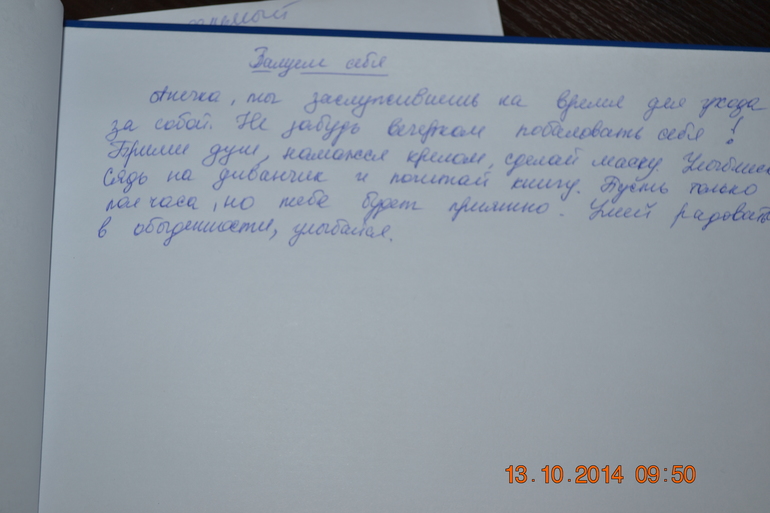 себя
Анечка, ты заслуживаешь на время для ухода
за собой. Не забудь вечерком побаловать себя!
Прими душ, намажься кремом, сделай маску. Улыбнись
Сядь на диванчик и почитай книгу. Пусть только
полчаса, но тебе будет приятно. Умей радоват
в обыденности, улыбайся.
13.10.2014 09:50